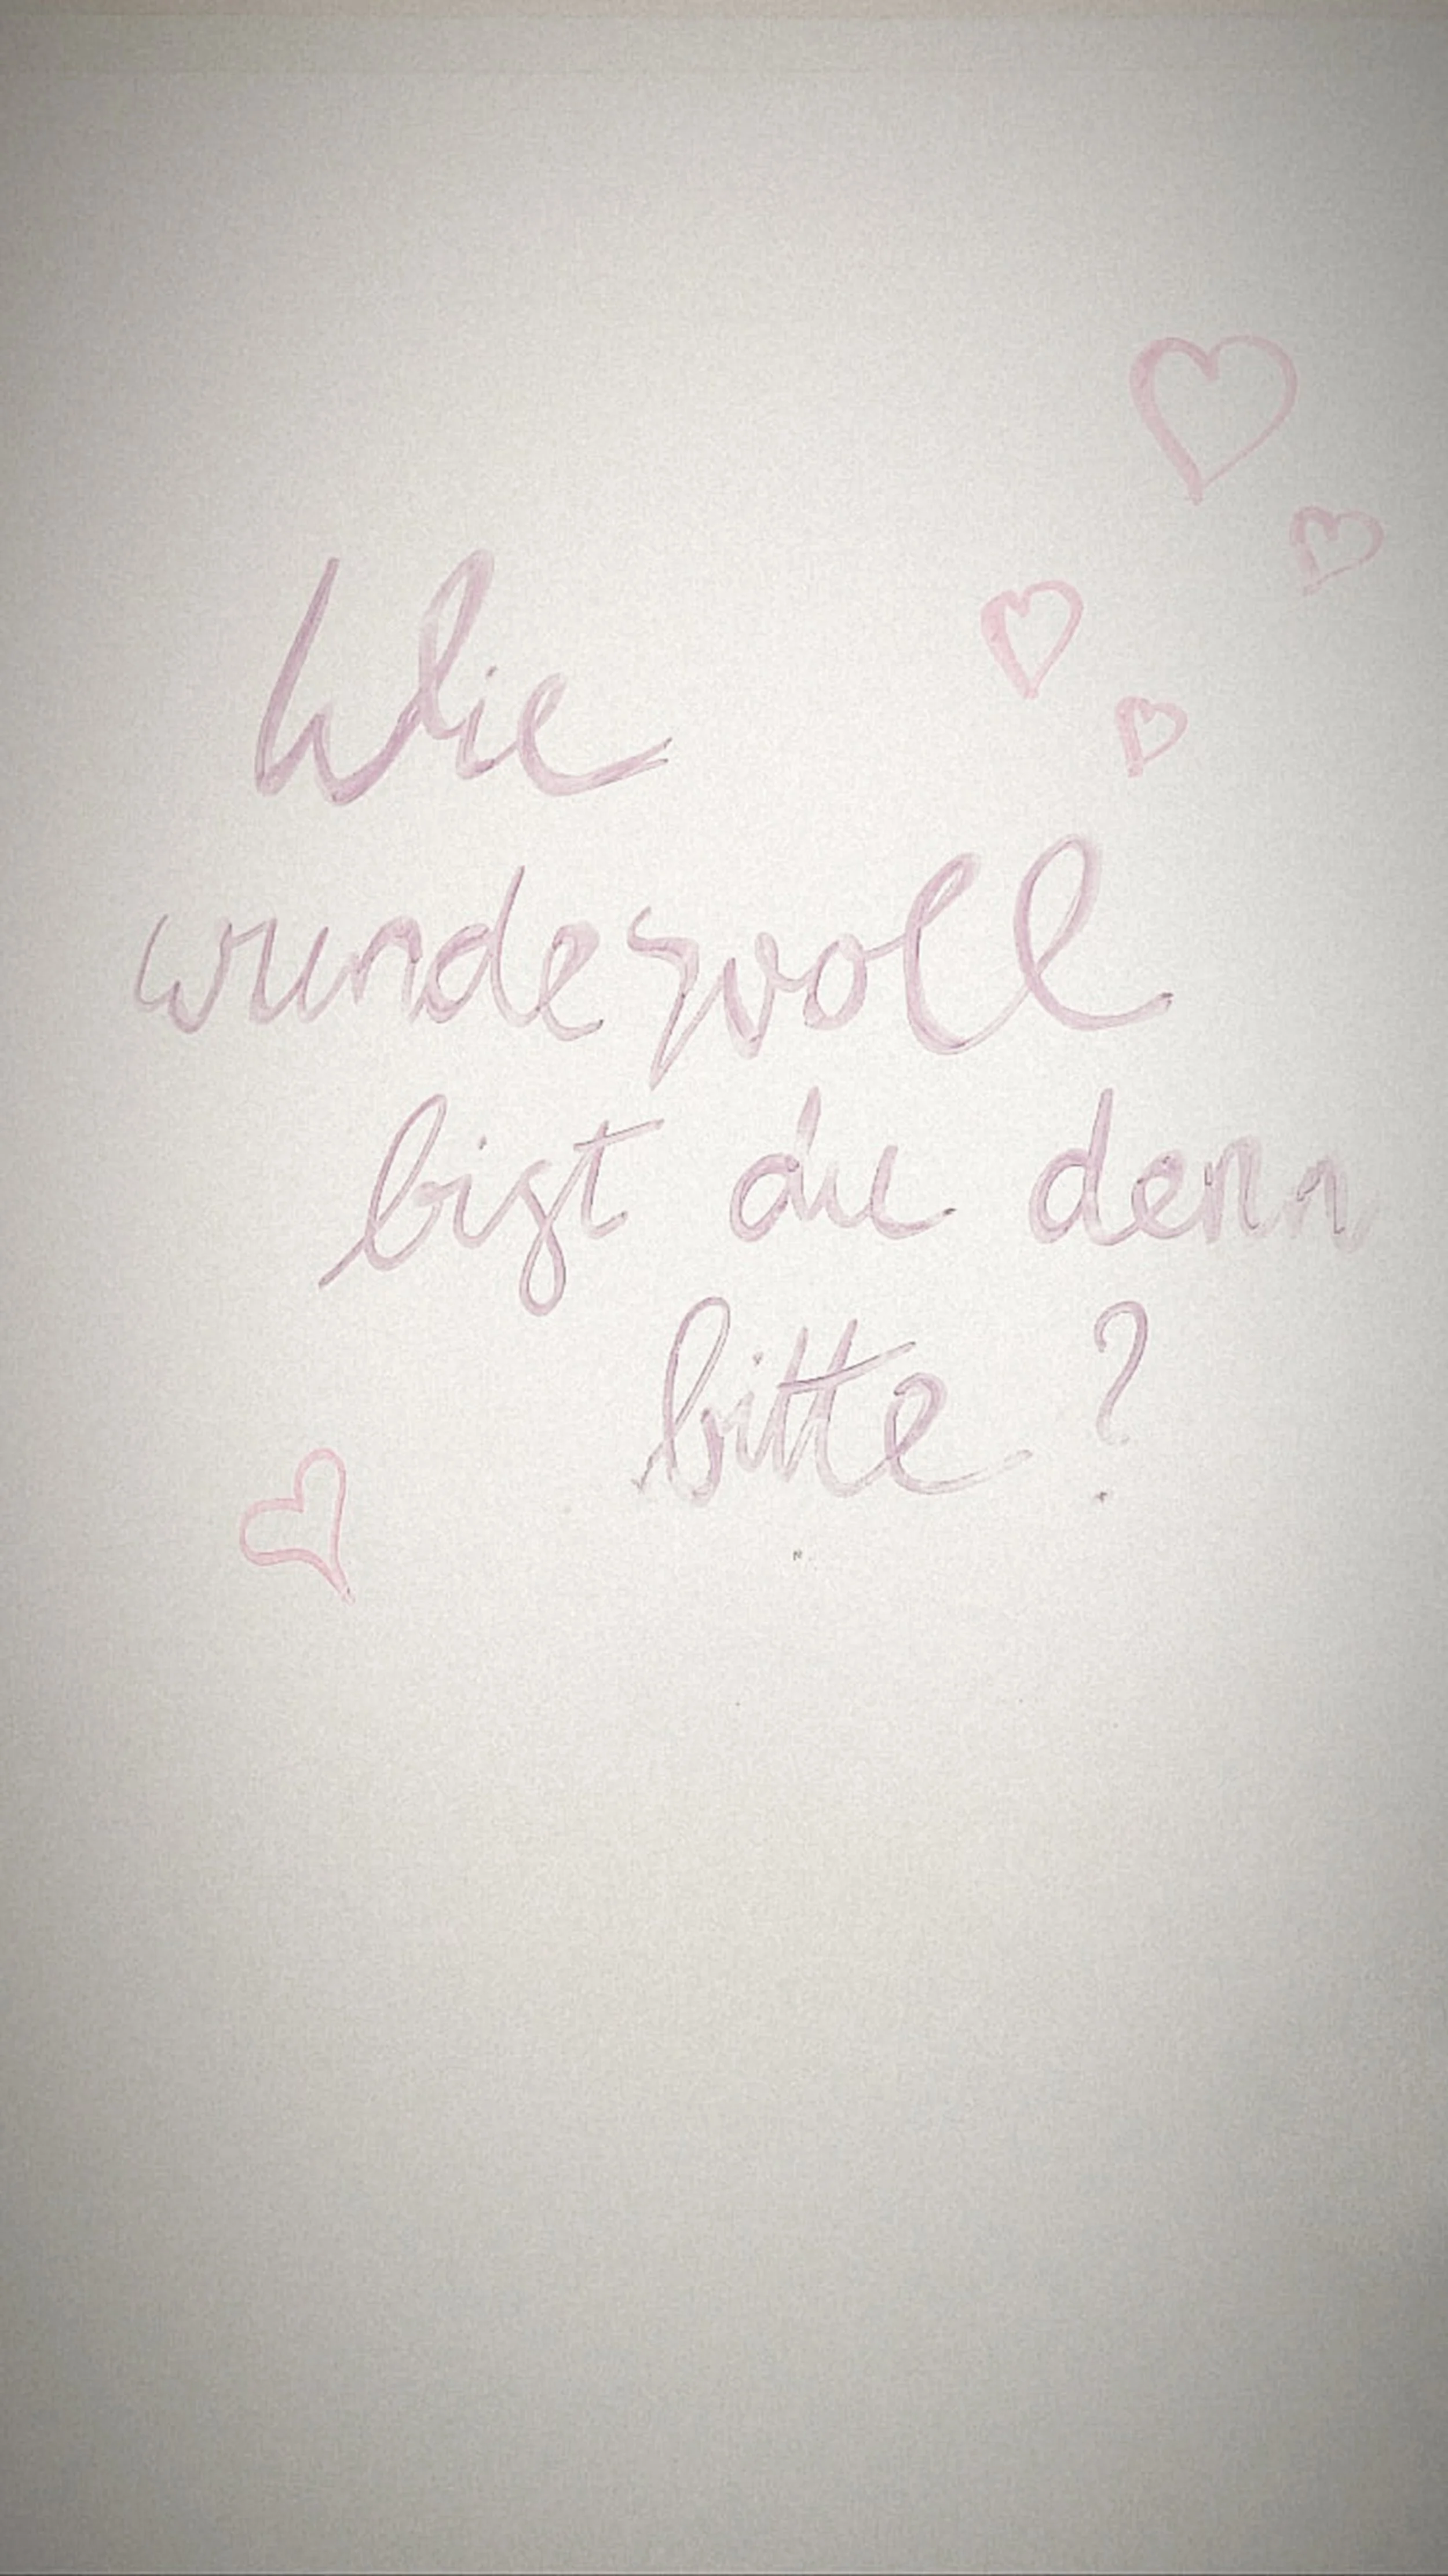 Wie
wundervoll
bist du denn
bitte?